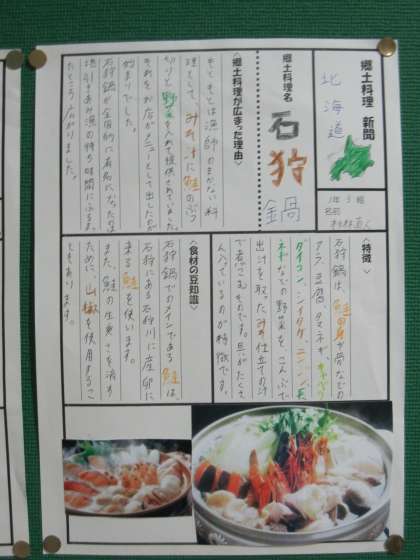 郷土料理 新聞
北海道
1年5組
名前
郷土料理名
石狩鍋
〈郷土料理が広まった理由〉
もともとは漁師のまかない料
理として、みそ汁に鮭のぶつ
切りと野菜を入れて提供されていました。
それをお店がメニューとして出したのが
始まりでした。
石狩鍋が全国的に有名になったのは
地引きあみ漁の待ち時間にふるま
たところ広がりました。
〈特徴〉
石狩鍋は、鮭の身や骨などの
アラ、豆腐、タマネギ、キャベツ、
ダイコン、シイタケ、ニンジン、長
ネギなどの野菜をこんぶで
出汁を取たみそ仕立ての汁
で煮こむものです。具がたくさ
ん入っているのが特徴です。
〈食材の豆知識〉
石狩鍋でのメインである鮭は、
石狩にある石狩川に産卵に
来る鮭を使います。
また、鮭の生臭さを消す
ために、山椒を使用するこ
ともあります。